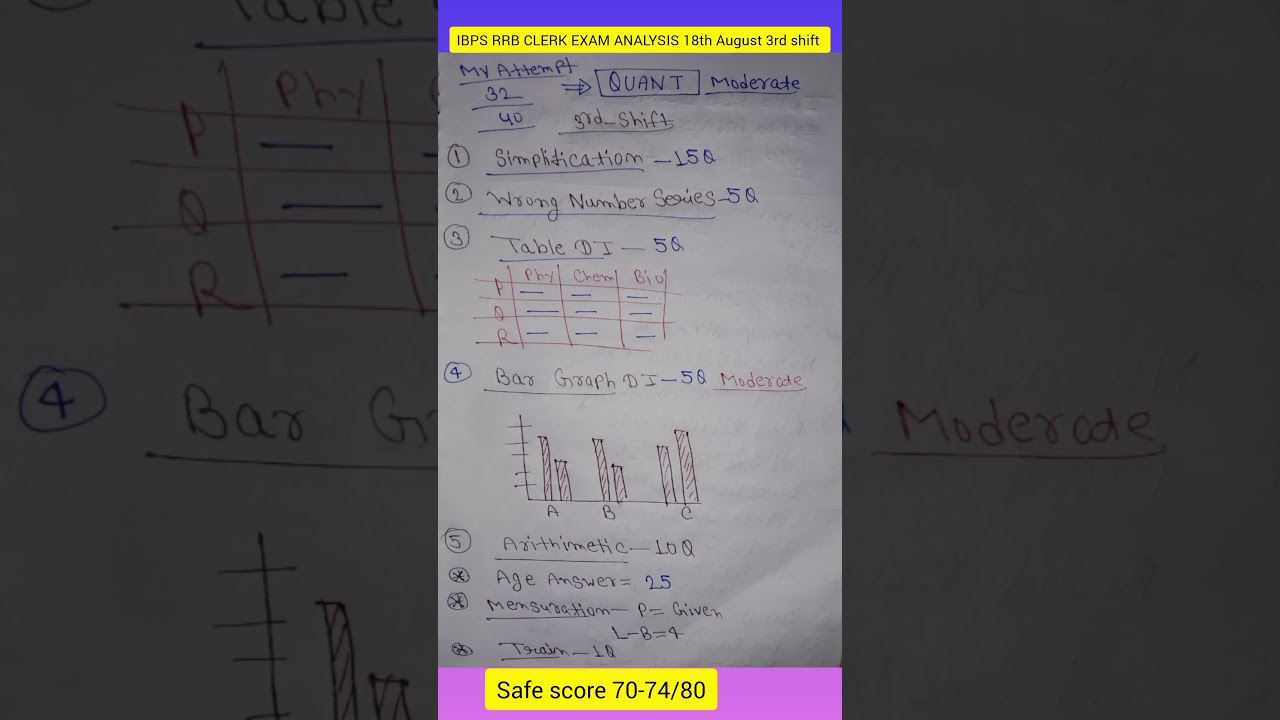 IBPS RRB CLERK EXAM ANALYSIS 18th August 3rd shift
My Attempt
32
40
⇒ QUANT Moderate
3rd-Shift
① Simplification - 15Q
② Wrong Number Series - 5Q
③ Table DI - 5Q
Phy Chem Bio
P
Q
R
④ Bar Graph DI - 5Q Moderate
A B C
⑤ Arithimetic - 10Q
Age Answer = 25
Mensuration - P = Given
L-B=4
Train - 1Q
Safe score 70-74/80
Table
Phy
P
Q
R
④ Bar G
Moderate